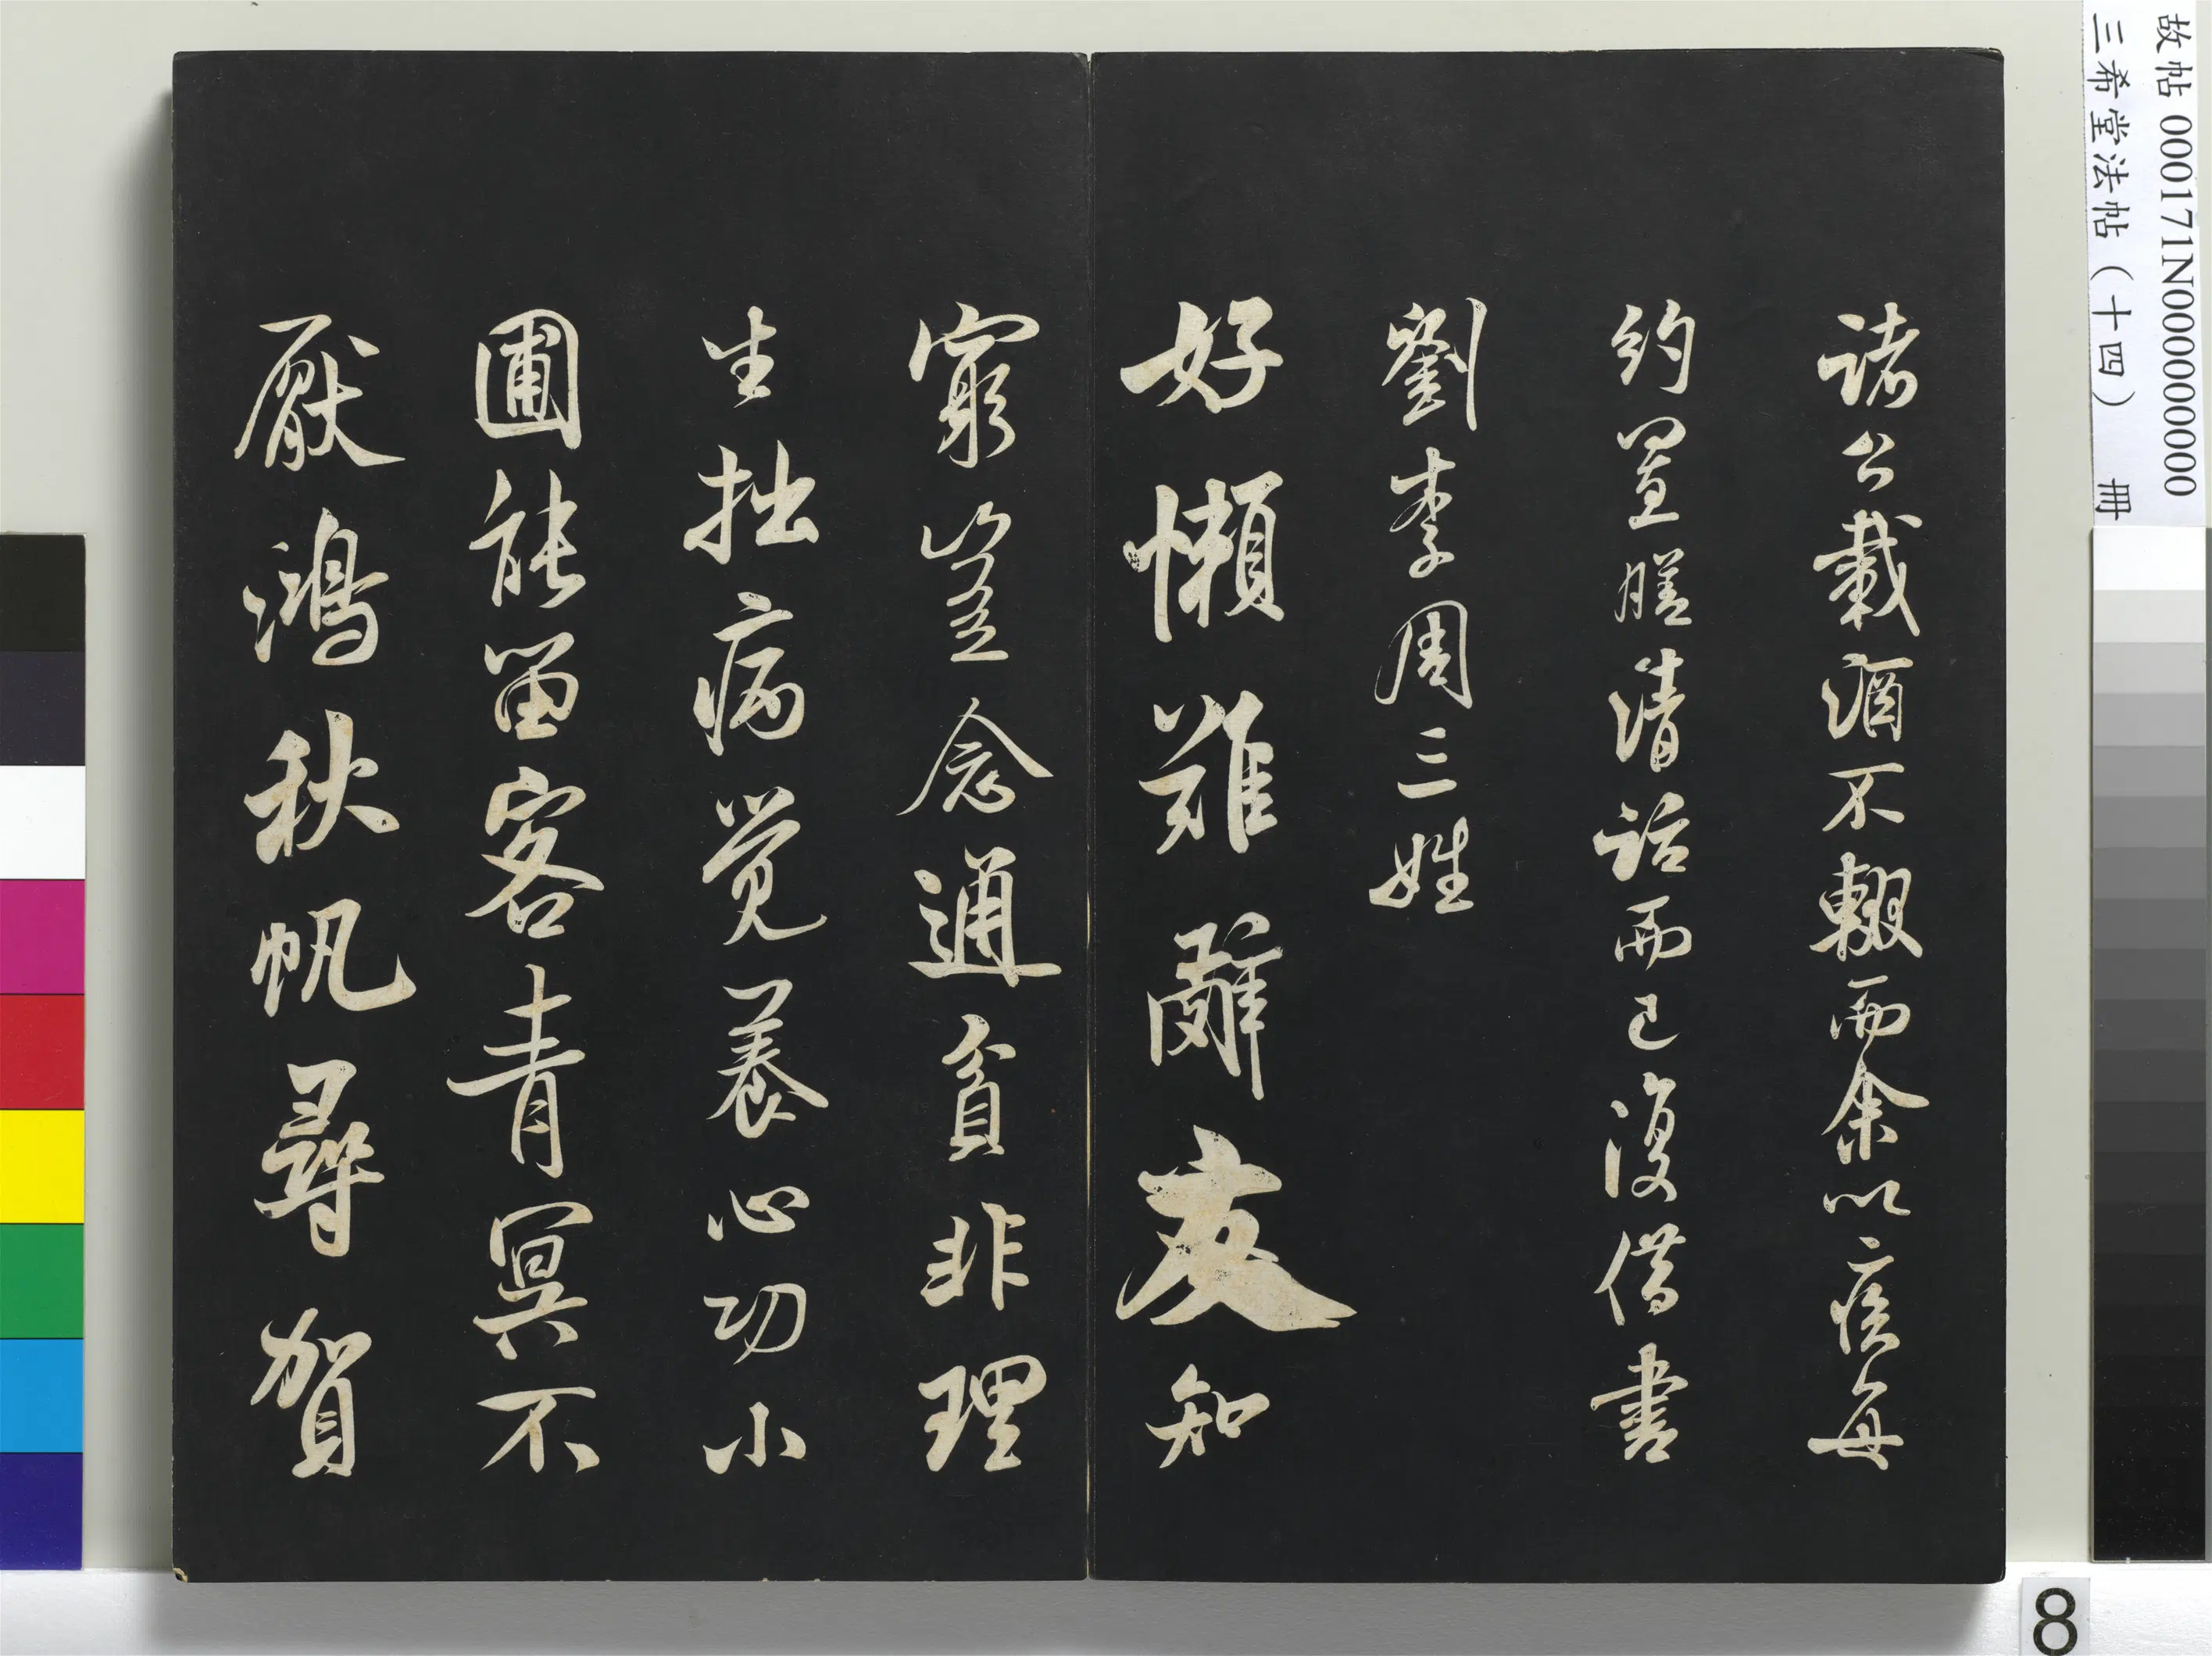 諸公載酒不輟而余以疾每
約置膳清話而已復借書
劉李周三姓
好懶難辭友知
窮豈念通貧非理
生拙病覺養心功小
圃能留客青冥不
厭鴻秋帆尋賀
故帖 000171N000000000
三希堂法帖（十四） 冊
8